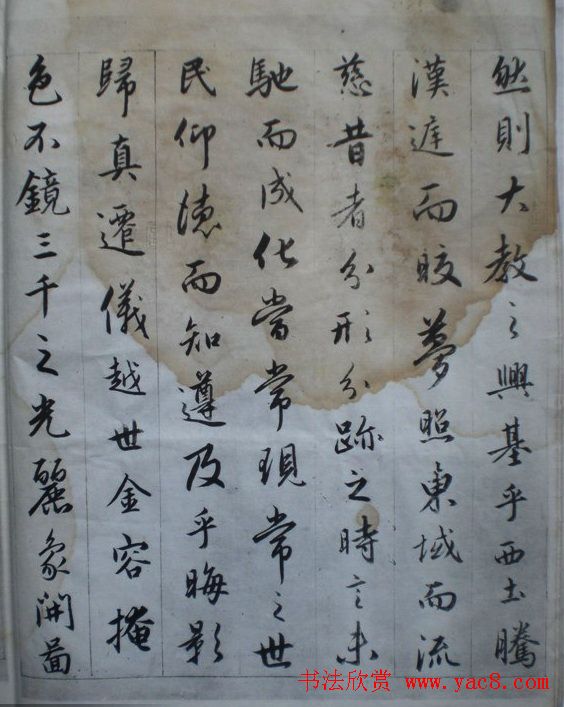 然則大教之興基乎西土騰
漢庭而皎夢照東域而流
慈昔者分形分跡之時言未
馳而成化當常現常之世
民仰德而知遵及乎晦影
歸真遷儀越世金容掩
色不鏡三千之光麗象開圖
书法欣赏 www.yac8.com